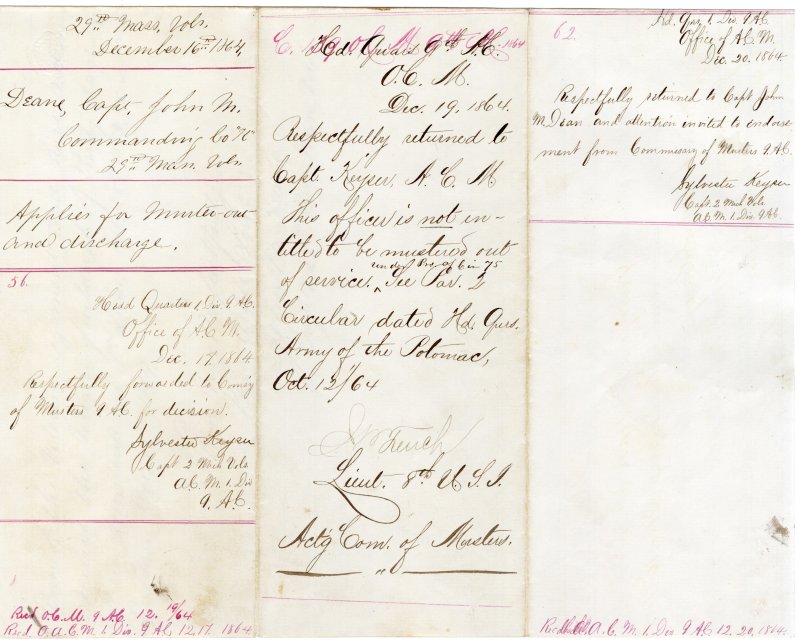 29th Mass. Vols.
December 16th 1864
Deane, Capt. John M.
Commanding Co "K"
29th Mass. Vols
Applies for Muster-out
and discharge.
56.
Head Quarters 1. Div. 9 A.C.
Office of A.C.M.
Dec. 17. 1864
Respectfully forwarded to Comsy
of Musters 9 A.C. for decision.
Sylvester Keyser
Capt 2 Mich Vols
A.C.M. 1. Div
9. A.C.
Recd O.C.M. 9 A.C. 12. 19/64
Recd. O.A.C.M. 1. Div. 9 A.C. 12.17. 1864
Hd. Quars 9th A.C.
O.C.M.
Dec. 19. 1864.
Respectfully returned to
Capt. Keyser, A.C.M
This officer is not en-
titled to be mustered out
under in 75
of service. See Par. 2
Circular dated Hd. Qurs.
Army of the Potomac,
Oct. 12/64
French
Lieut. 8th U.S.I.
Act'g Com. of Musters.
62.
Hd. Qrs. 1. Div. 9 A.C.
Office of A.C.M.
Dec. 20. 1864
Respectfully returned to Capt John
M Dean and attention invited to endorse
ment from Commissary of Musters 9 A.C.
Sylvester Keyser
Capt. 2 Mich Vols
A.C.M. 1. Div. 9 A.C.
A.C.M. 1. Div. 9 A.C. 12. 20, 1864.